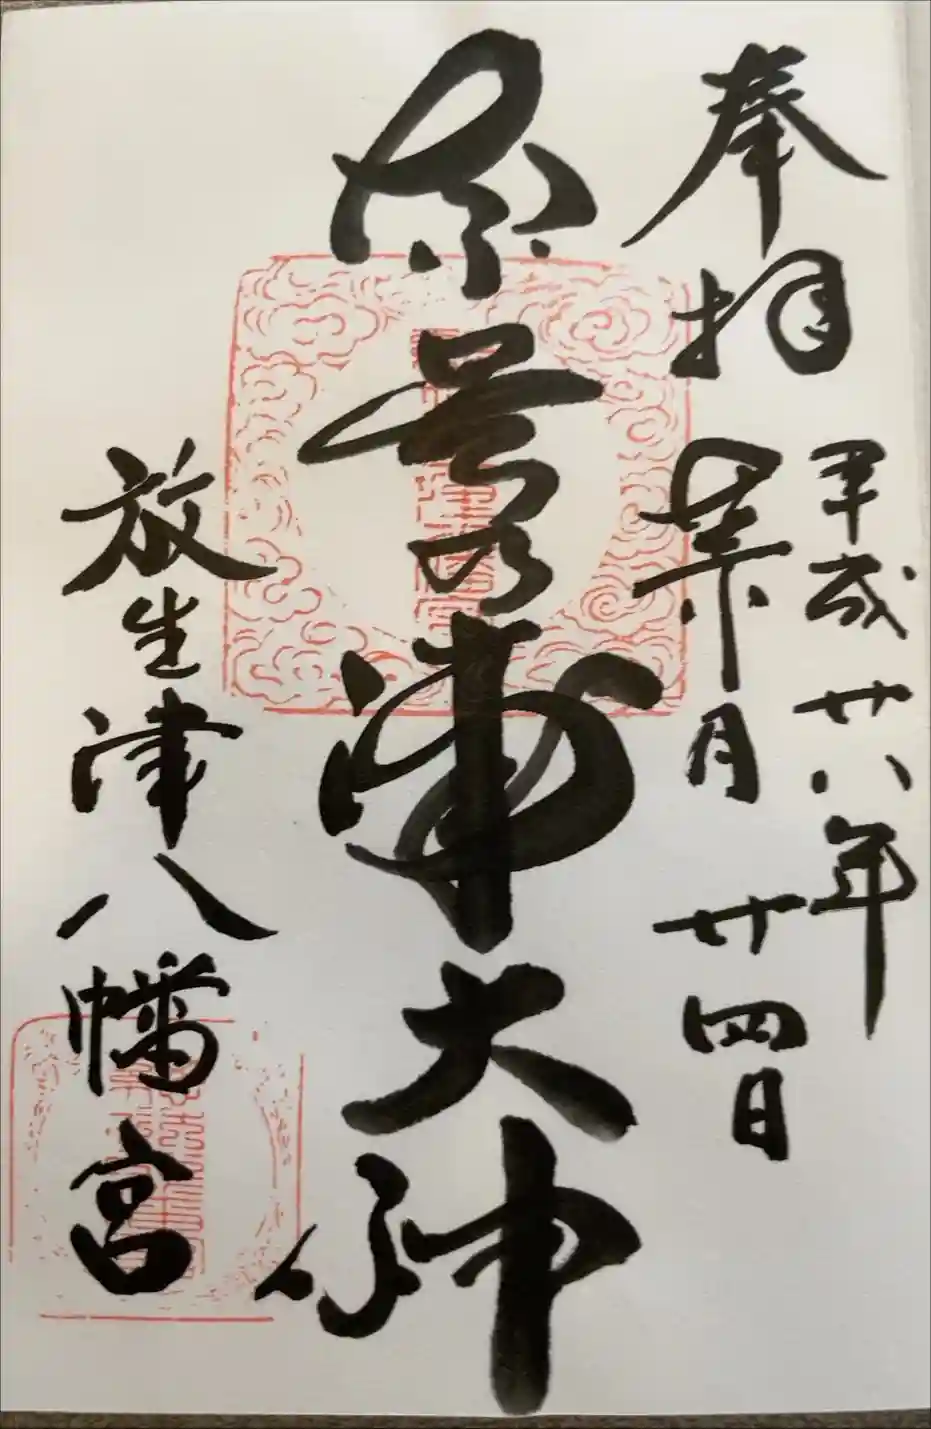 奉拝
平成廿八年
葉月廿四日
奈呉浦大神
放生津八幡宮